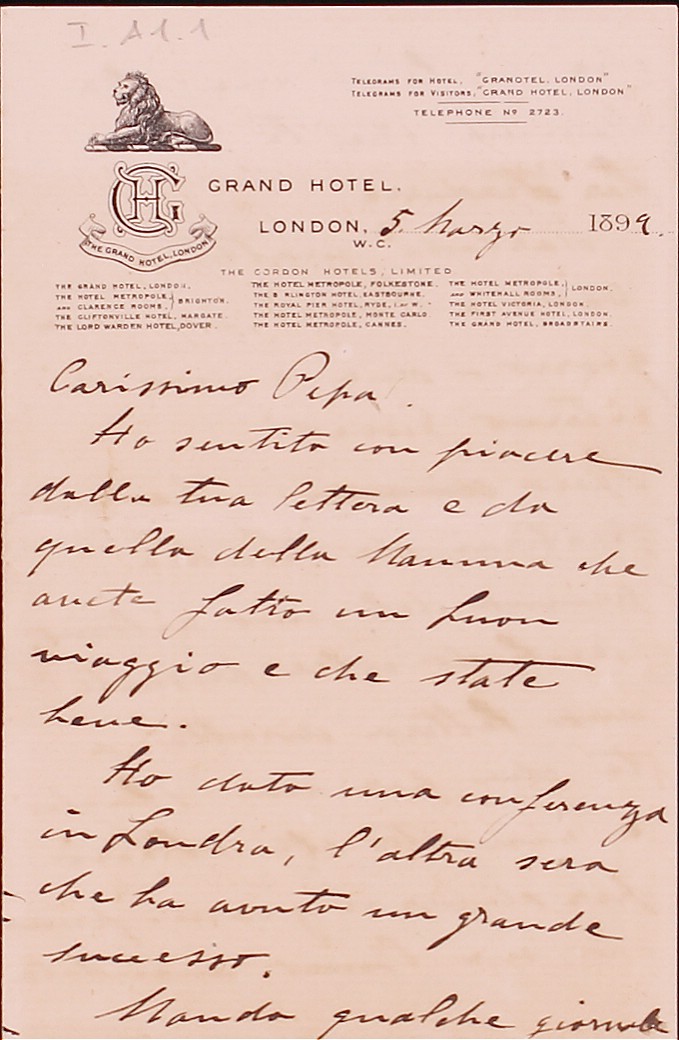 I. A1.1
TELEGRAMS FOR HOTEL, "GRANOTEL, LONDON"
TELEGRAMS FOR VISITORS, "GRAND HOTEL, LONDON"
TELEPHONE Nº 2723.
GHL
THE GRAND HOTEL, LONDON
GRAND HOTEL.
LONDON, 5. Marzo 1899.
W.C.
THE GORDON HOTELS, LIMITED
THE GRAND HOTEL, LONDON.
THE HOTEL METROPOLE,
AND CLARENCE ROOMS, } BRIGHTON.
THE CLIFTONVILLE HOTEL, MARGATE.
THE LORD WARDEN HOTEL, DOVER.
THE HOTEL METROPOLE, FOLKESTONE.
THE BURLINGTON HOTEL, EASTBOURNE.
THE ROYAL PIER HOTEL, RYDE, I. OF W.
THE HOTEL METROPOLE, MONTE CARLO.
THE HOTEL METROPOLE, CANNES.
THE HOTEL METROPOLE,
AND WHITEHALL ROOMS, } LONDON.
THE HOTEL VICTORIA, LONDON.
THE FIRST AVENUE HOTEL, LONDON.
THE GRAND HOTEL, BROADSTAIRS.
Carissimo Pepa.
Ho sentito con piacere
dalla tua lettera e da
quella della Mamma che
avete fatto un buon
viaggio e che state
bene.
Ho dato una conferenza
in Londra, l'altra sera
che ha avuto un grande
successo.
Mando qualche giornale